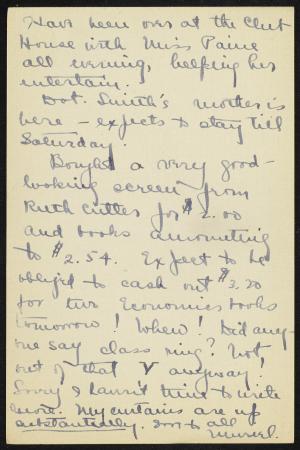 Have been over at the Club
House with Miss Paine
all evening, helping her
entertain.
Dot. Smith's mother is
here – expects to stay till
Saturday.
Bought a very good-
looking screen from
Ruth Cutter for $2.00
and books amounting
to $2.54. Expect to be
obliged to cash out $3.20
for two Economics books
tomorrow! Whew! Did any-
one say class ring? Not
out of that V anyway!
Sorry I haven't time to write
more. My curtains are up
substantially. Love to all
Muriel.